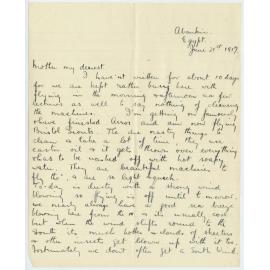 Aboukir.
Egypt.
June 21st 1917.
Mother my dearest
I haven't written for about 10 days
for we are kept rather busy here with
flying in the morning & afternoon & a few
lectures as well to say nothing of cleaning
the machines. I'm getting on famously
& have finished Avros and am now flying
Bristol Scouts. The are nasty things to
clean & take a lot of time. They use
castor oil & it gets thrown over everything
& has to be washed off with hot soapy
water. They are beautiful machines to
fly tho', & are so light & quick.
To-day is dusty with a strong wind
blowing so flying is off until to morrow.
We nearly always have a good sea breeze
blowing here from the & its usually cool
but when the wind shifts round to the
South its much hotter & clouds of
& other insects get blown up with it too.
Fortunately we don't often get a South Wind.